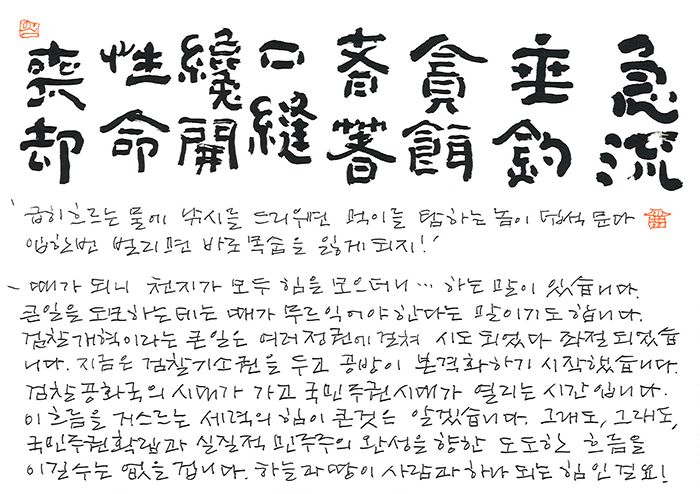 急流
垂釣
貪餌
者著
口縫
纔開
性命
喪却
'급히 흐르는 물에 낚시를 드리우면 먹이를 탐하는 놈이 덥석 문다
입 한번 벌리면 바로 목숨을 잃게 되지!'
~ 때가 되니 천지가 모두 힘을 모으더니… 하는 말이 있습니다.
큰일을 도모하는데는 때가 무르익어야 한다는 말이기도 합니다.
검찰개혁이라는 큰일은 여러 정권에 걸쳐 시도 되었다 좌절 되었습
니다. 지금은 검찰기소권을 두고 공방이 본격화하기 시작했습니다.
검찰공화국의 시대가 가고 국민주권시대가 열리는 시간입니다.
이 흐름을 거스르는 세력의 힘이 큰것은 알겠습니다. 그래도, 그래도,
국민주권확립과 실질적 민주주의 완성을 향한 도도한 흐름을
이길 수는 없을 겁니다. 하늘과 땅이 사람과 하나 되는 힘인걸요!